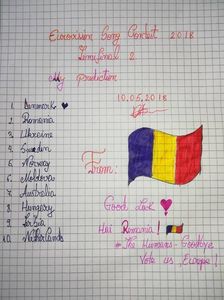 Eurovision Song Contest 2018
Semifinal 2
My prediction
10.05.2018
1. Denmark
2. Romania
3. Ukraine
4. Sweden
5. Norway
6. Moldova
7. Australia
8. Hungary
9. Serbia
10. Netherlands
From:
Good Luck
Hai Romania!
# The Humans - Goodbye
Vote us, Europe!